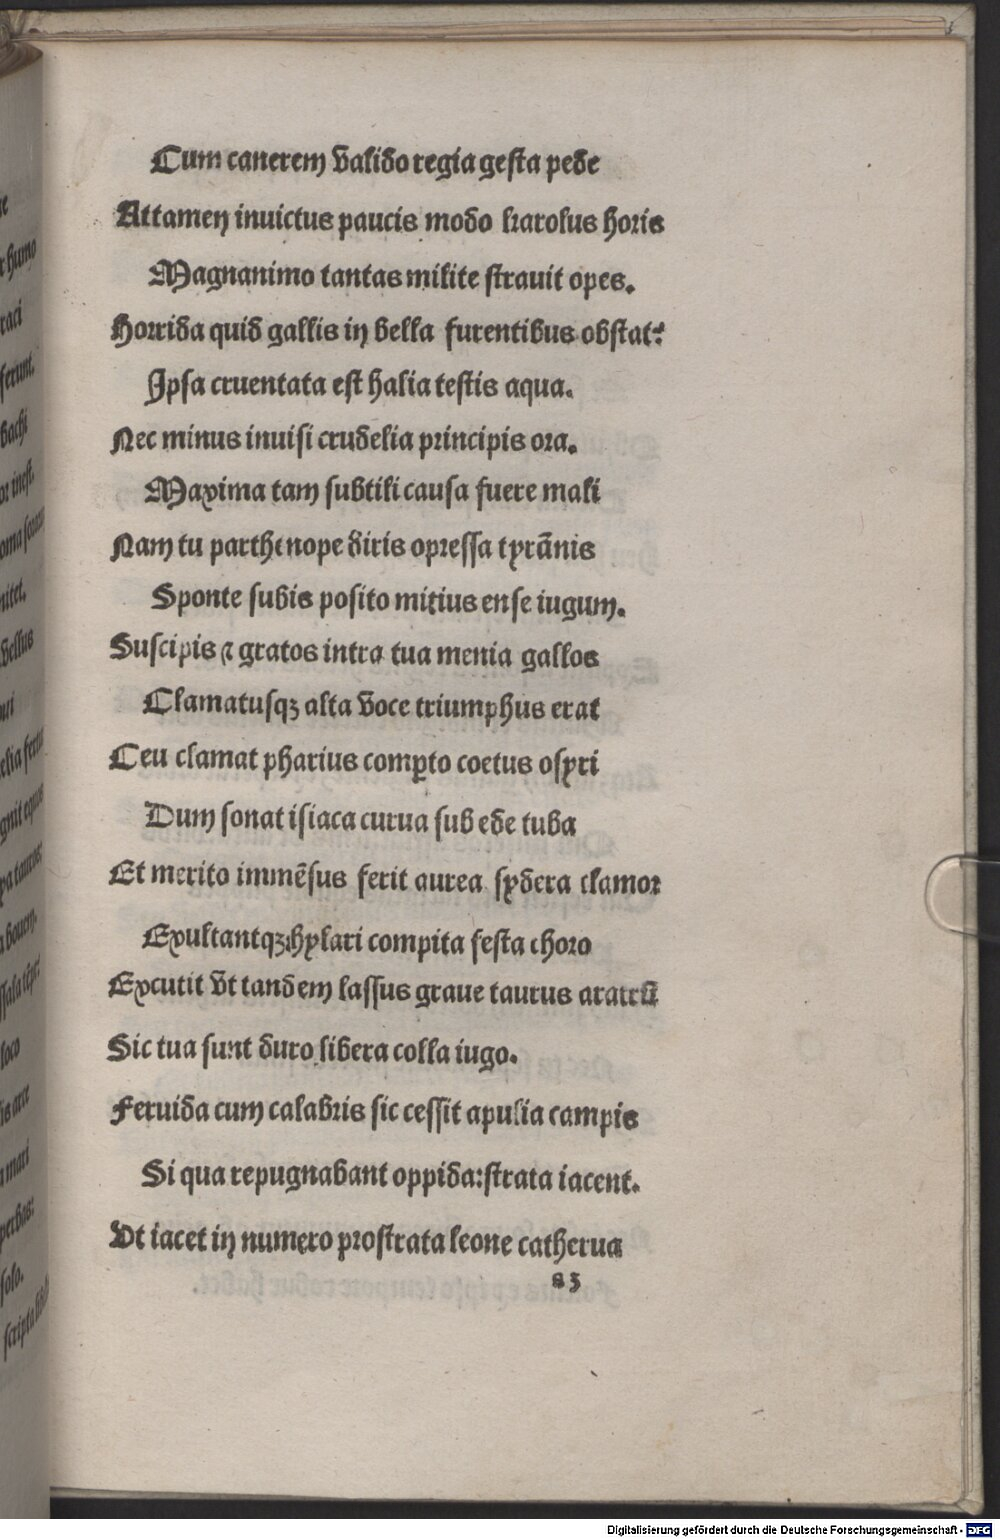 Cum canerem valido regia gesta pede
Attamen invictus paucis modo karolus horis
Magnanimo tantas milite stravit opes.
Horrida quid gallis in bella furentibus obstat?
Ipsa cruentata est halia testis aqua.
Nec minus invisi crudelia principis ora.
Maxima tam subtili causa fuere mali
Nam tu parthenope diris opressa tyrānis
Sponte subis posito mitius ense iugum.
Suscipis ⁊ gratos intra tua menia gallos
Clamatusqꝫ alta voce triumphus erat
Ceu clamat pharius comꝑto coetus osyri
Dum sonat isiaca curua sub ede tuba
Et merito immēsus ferit aurea sydera clamor
Exultantqꝫ hylari compita festa choro
Excutit vt tandem lassus graue taurus aratrū
Sic tua sunt duro libera colla iugo.
Feruida cum calabris sic cessit apulia campis
Si qua repugnabant oppida: strata iacent.
Vt iacet in numero prostrata leone catherua
a3
ferunt.
bachi
vellus
loco
mari
solo.
Digitalisierung gefördert durch die Deutsche Forschungsgemeinschaft - DFG